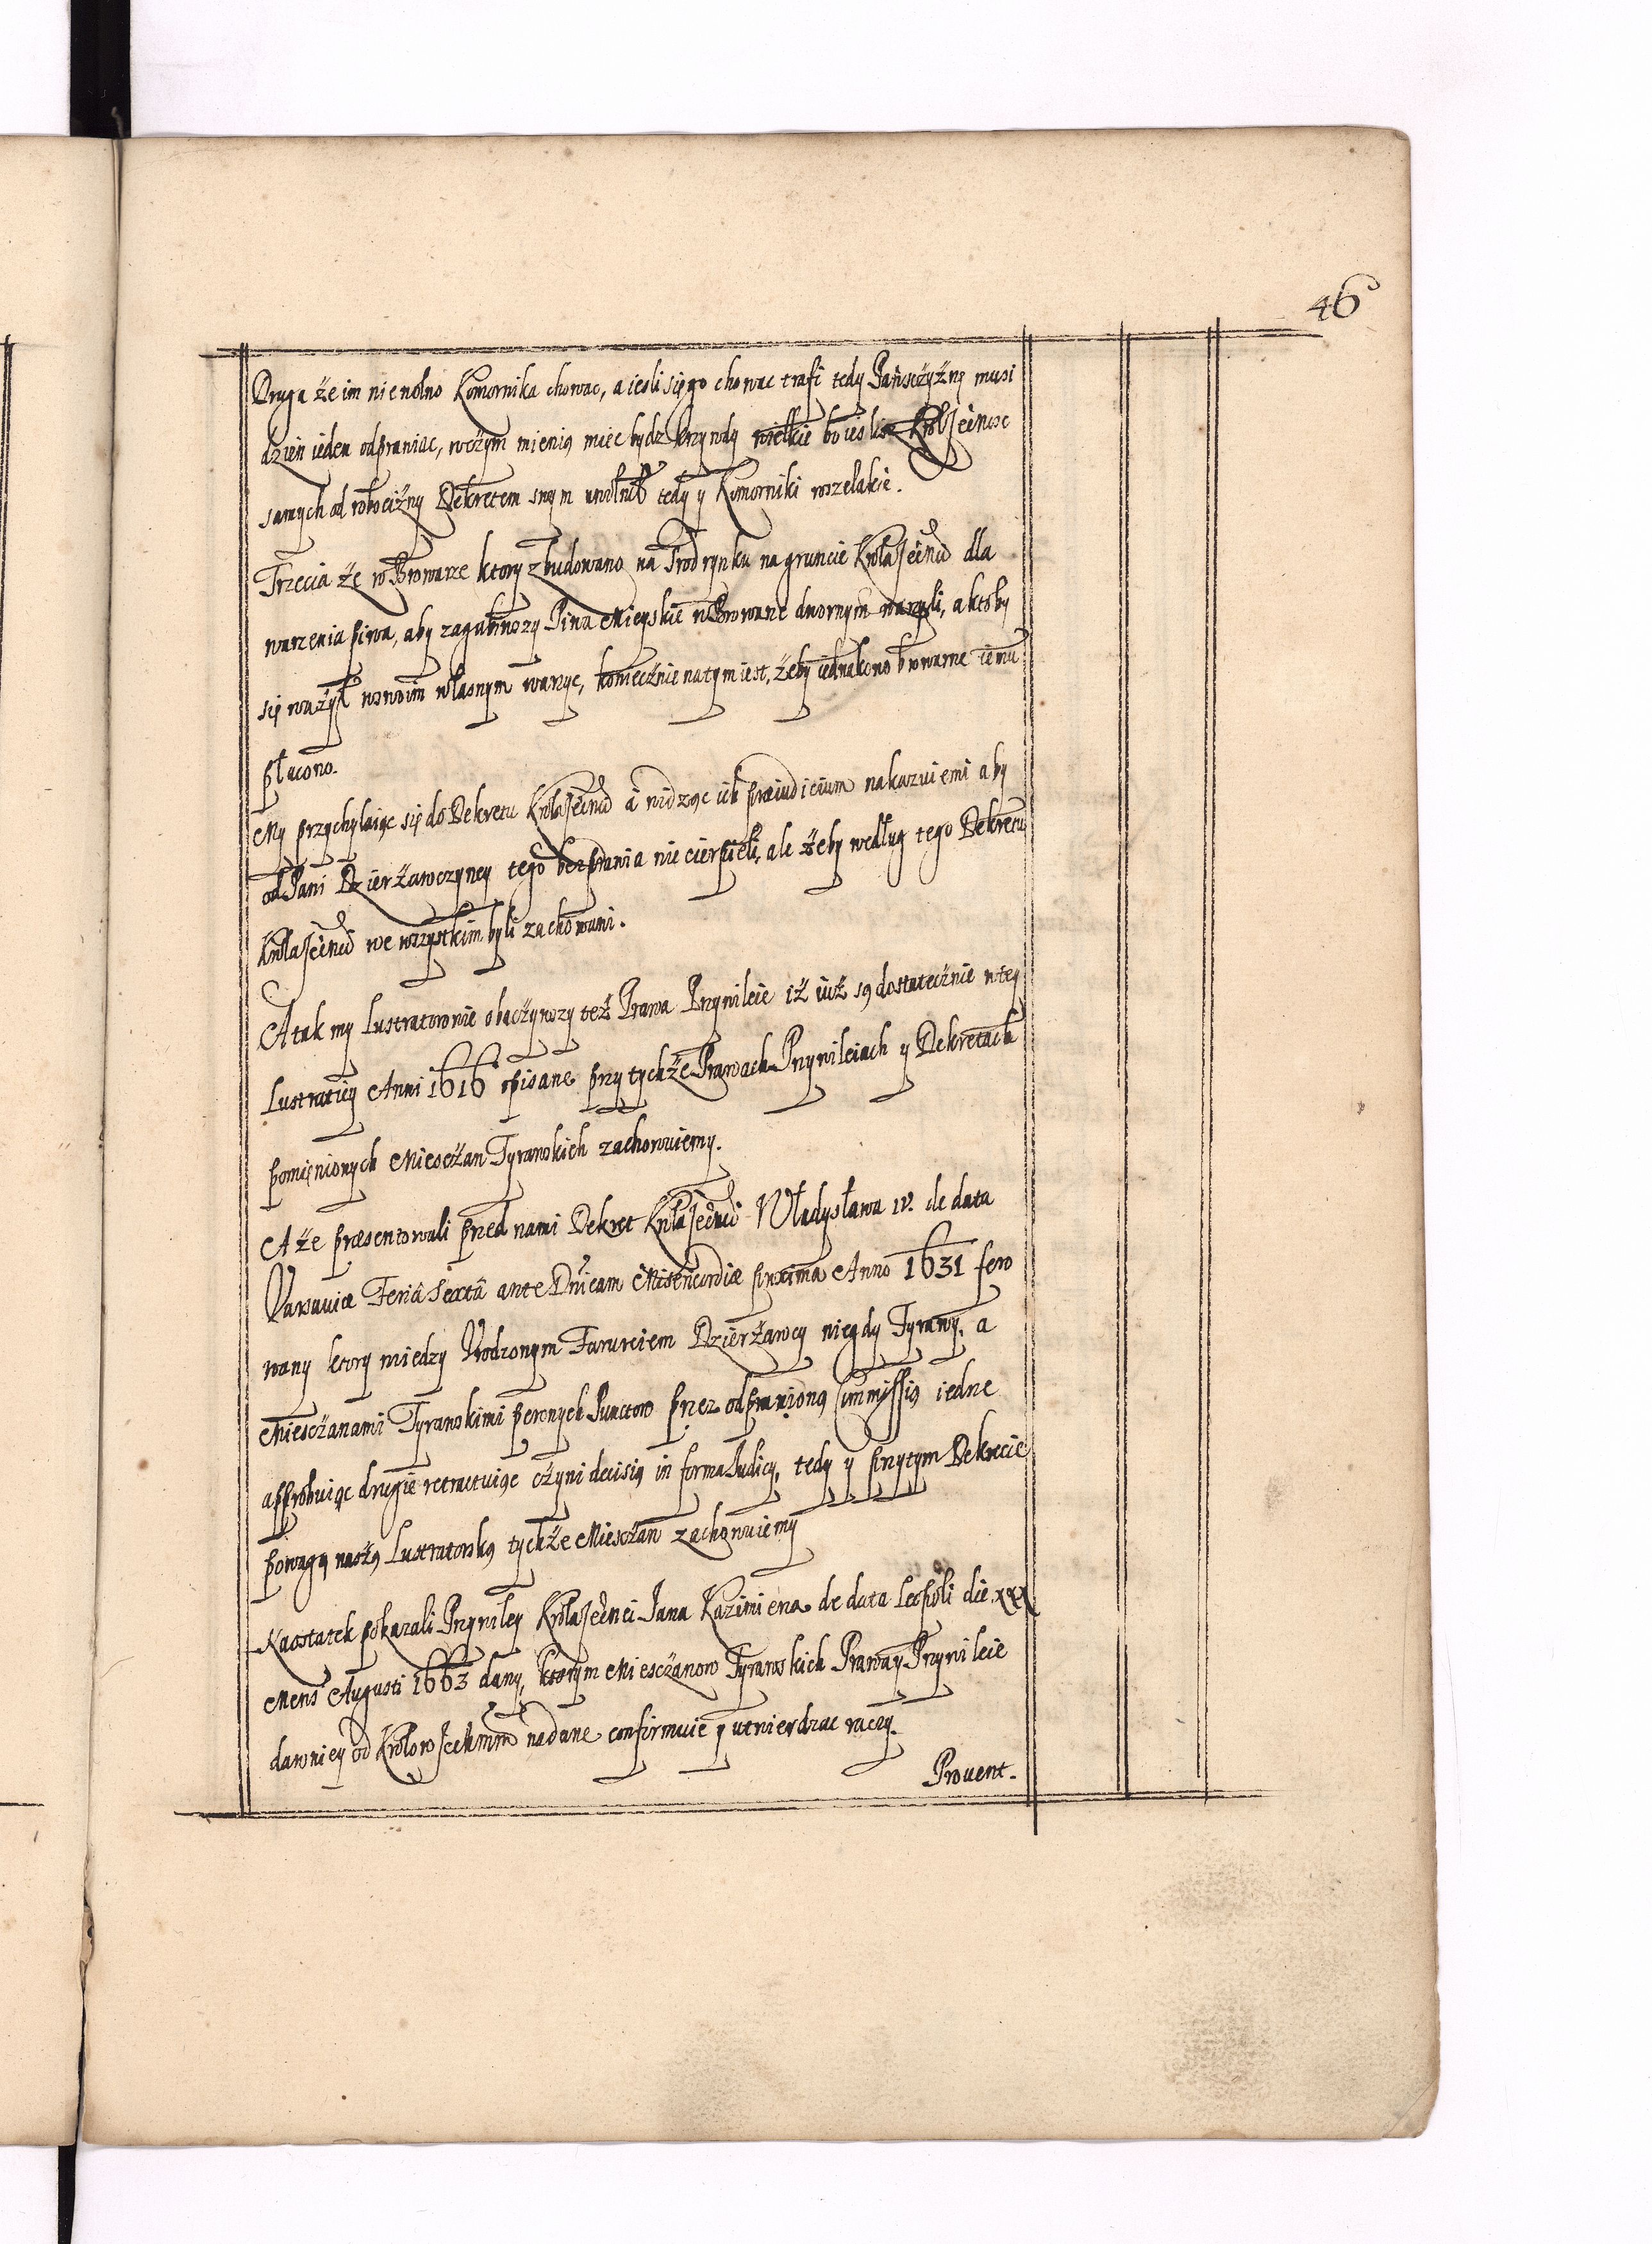 46
Druga że im nie wolno Komornika chowac, a iesli się go chowac trafi tedy Pańsczyznę musi
dzień ieden odprawiac, w czym mienią miec bydz krzywdy wielkie bo iesli Krol Je̅mc
samych od robocizny Dekretem swym uwolnił tedy y Komorniki wszelakie.
Trzecia że w Browarze ktory zbudowano na srod rynku na gruncie Krola Je̅mci dla
warzenia piwa, aby zagubiwszy Piwa Mieyskie w Browarze dwornym warzyli, a ktoby
się ważył w swoim własnym warzyc, koniecznie na tym iest, żeby iednakowo browarne iemu
płacono.
My przychylaiąc się do Dekretu Krola Je̅mci a widząc ich præiudicium nakazuiemi aby
od Pani Dzierżawczyney tego bezprawia nie cierpieli, ale żeby według tego Dekretu
Krola Je̅mci we wszystkim byli zachowani.
A tak my Lustratorowie obaczywszy też Prawa Przywileie iż iuż są dostatecznie w tey
Lustratiey Anni 1616 opisane przy tychże Prawach Przywileiach y Dekretach
pomienionych Miesczan Tyrawskich zachowuiemy.
A że præsentowali przed nami Dekret Krola Je̅mci Władysława IV. de data
Varsaviæ Feriâ Sextâ ante Dnicam Misericordiæ proxima Anno 1631 fero
wany ktory miedzy Urodzonym Tarurciem Dzierżawcy niegdy Tyrawy, a
Miesczanami Tyrawskimi pewnych Punctow przez odprawioną Commissią iedne
approbuiąc drugie retractuiąc czyni decisią in forma Iudicy, tedy y przytym Dekrecie
powagą naszą Lustratorską tychże Miesczan zachowuiemy
Naostatek pokazali Przywiley Krola Je̅mci Jana Kazimierza de data Leopoli die XXX
Mens Augusti 1663 dany, ktorym Miesczanow Tyrawskich Prawa y Przywileie
dawniey od Krolow Ichmm nadane confirmuie y utwierdzac raczy.
Provent.